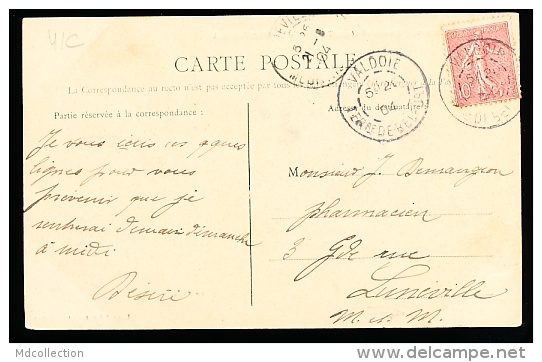 V/C
CARTE POSTALE
La Correspondance au recto n'est pas acceptée par tous les pays
Partie réservée à la correspondance :
Adresse du destinataire
VALDOIE
TERRE DE BELFORT
VALDOIE
10
Je vous écris ces qques
lignes pour vous
prévenir que je
rentrerai demain dimanche
à midi
Désiré
Monsieur J. Demangeon
pharmacien
3 Gde rue
Lunéville
M. et M.
Mdcollection
delcampe.net